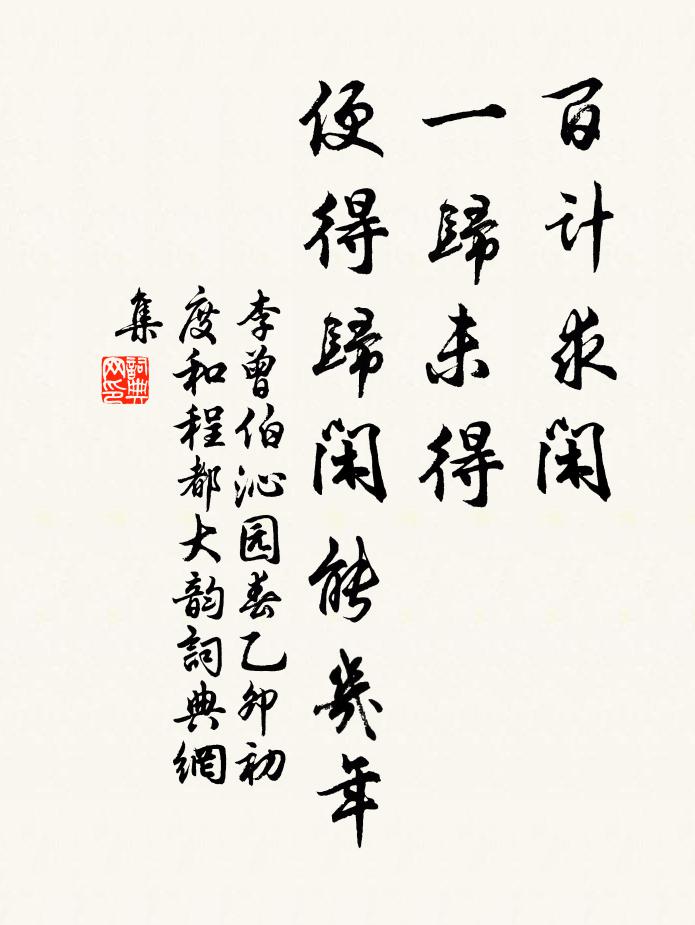 百计求闲
一歸未得
便得歸闲能幾年
李曾伯沁园春乙卯初
度和程都大韵詞典網
集
詞典
网印